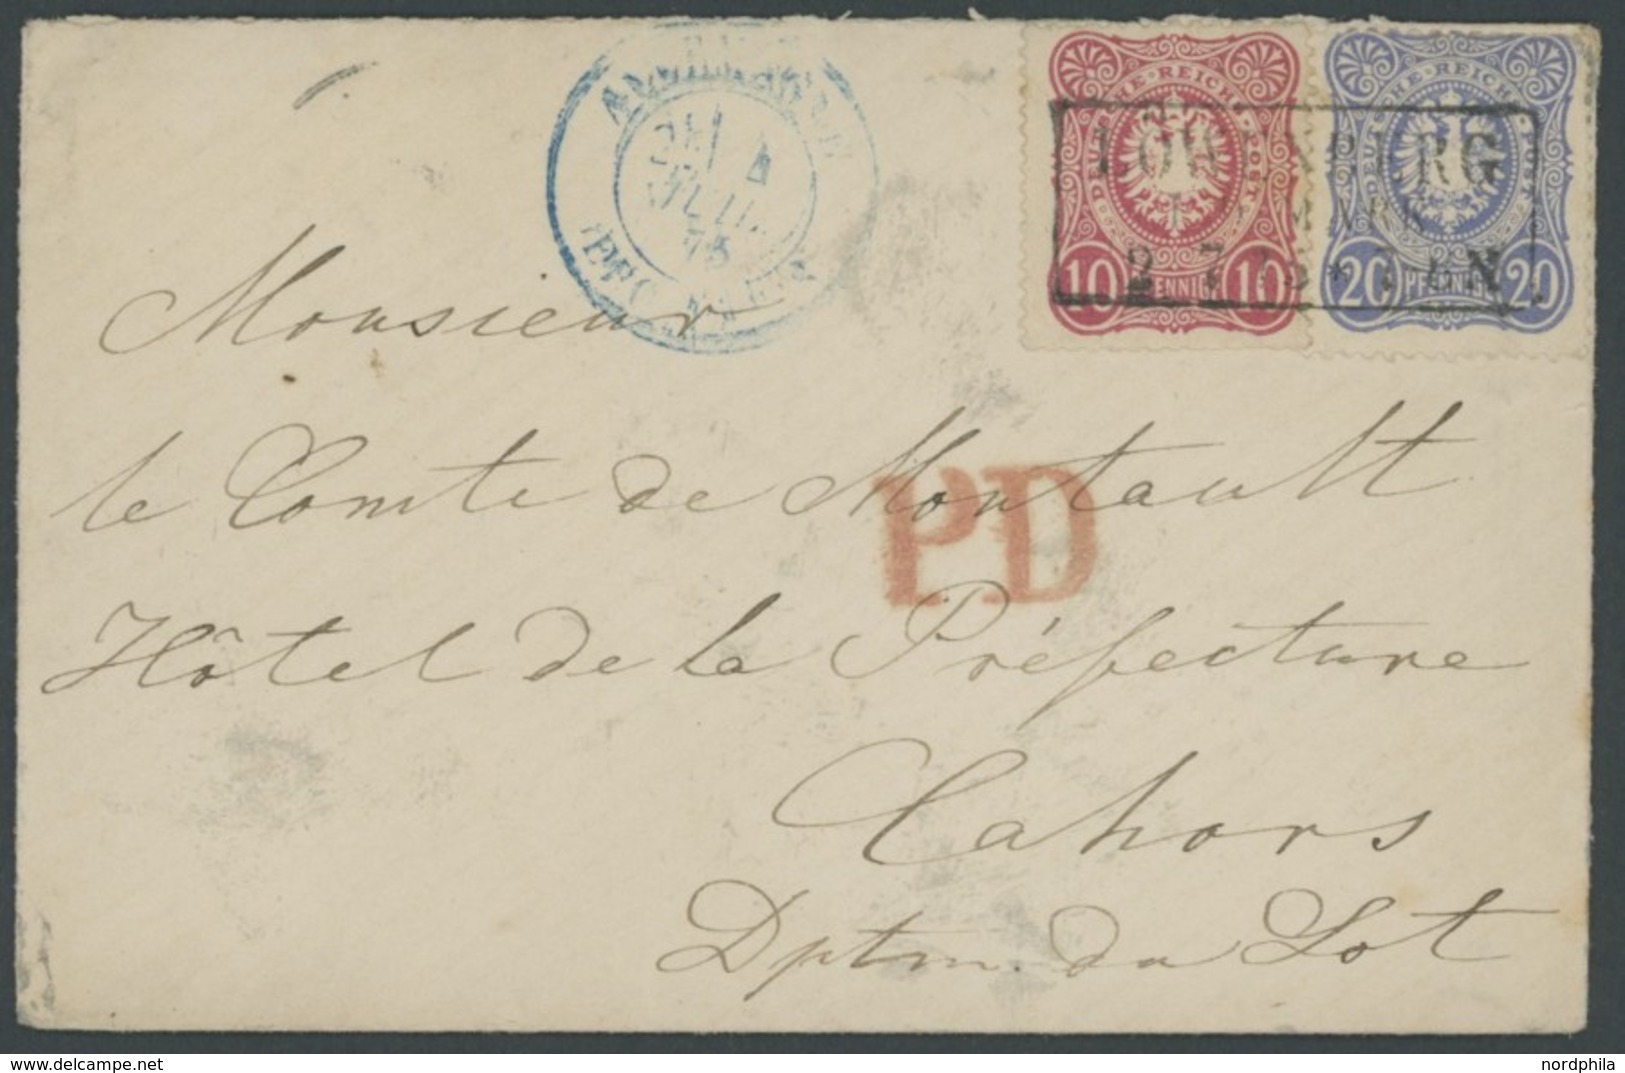 DEUTSCHE · REICHS · POST
10 PFENNIG 10
DEUTSCHE · REICHS · POST
20 PFENNIG 20
LÖWENBERG
MARK
2 7 75 *
75
Monsieur
le Comte de Montault
PD
Hôtel de la Préfecture
Cahors
Dptm. du Lot
nordphila